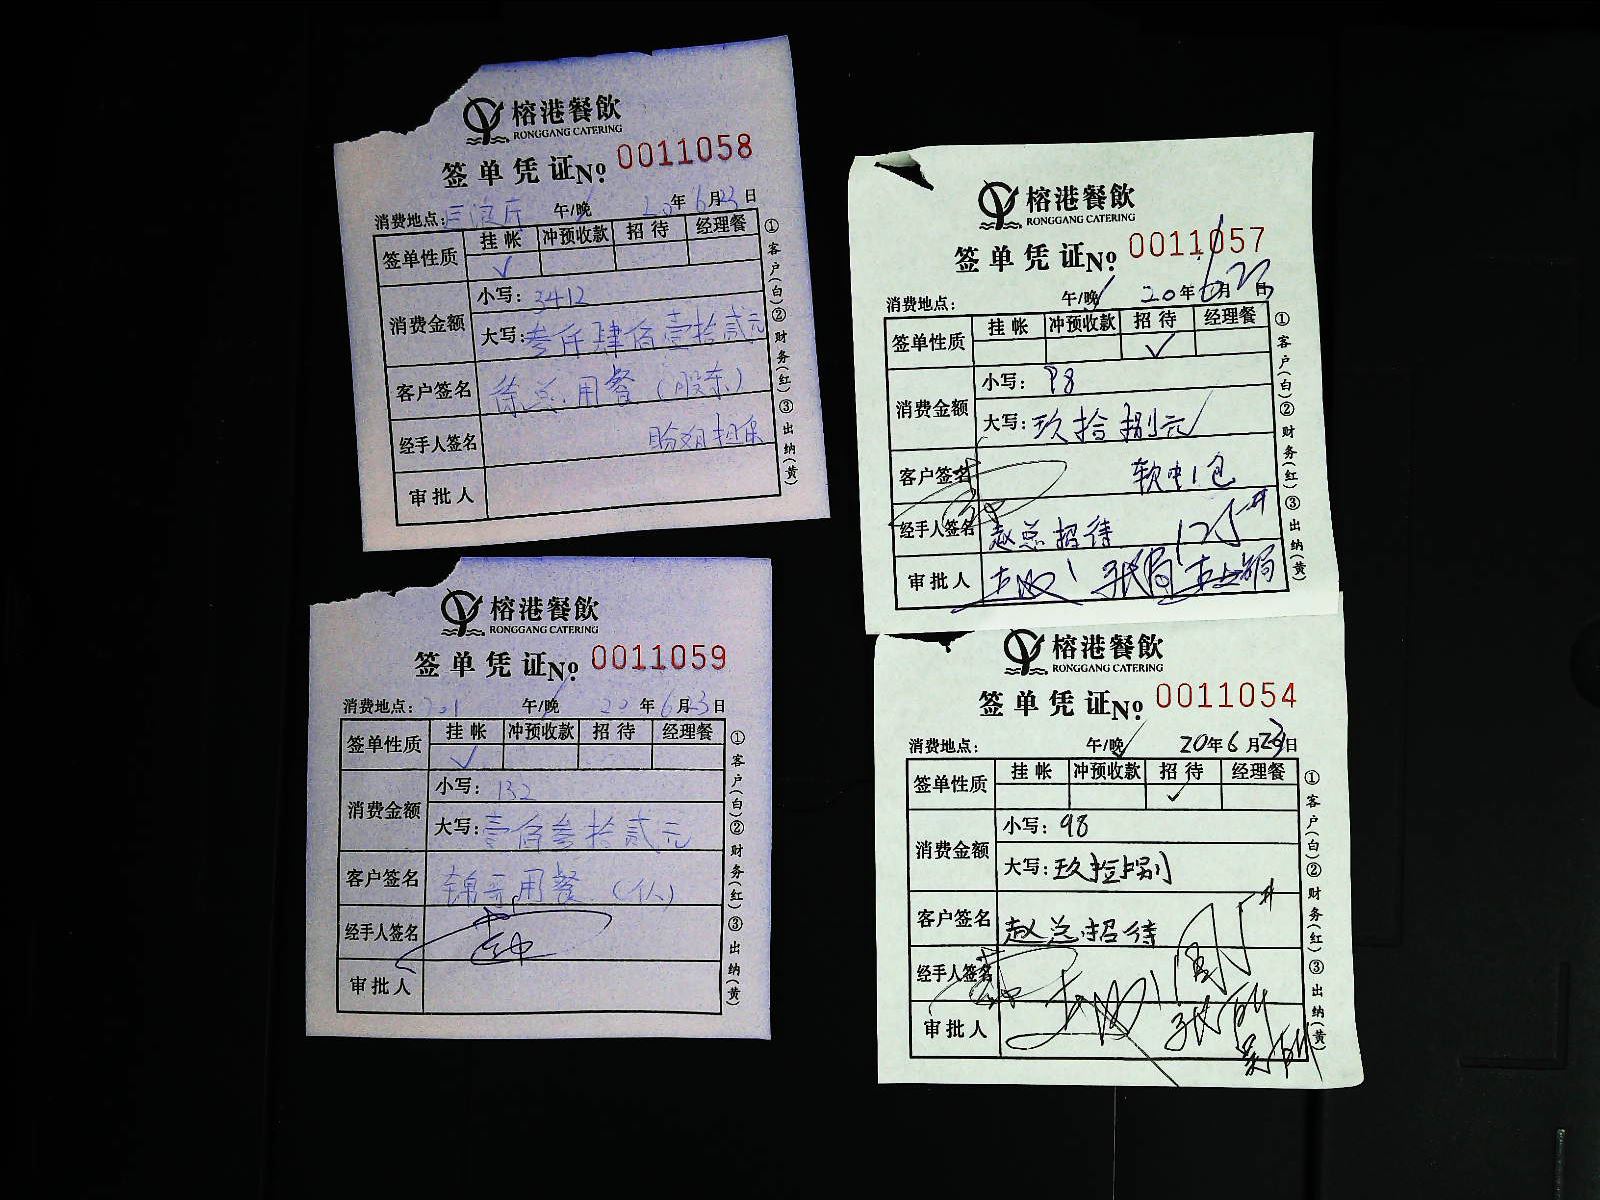 榕港餐飲
RONGGANG CATERING
签单凭证 No. 0011058
消费地点: 午/晚 20年6月23日
签单性质 挂帐 冲预收款 招待 经理餐
√
消费金额 小写: 3412
大写: 叁仟肆佰壹拾贰元
客户签名 徐总用餐（股东）
经手人签名 担保
审批人
①客户(白)②财务(红)③出纳(黄)
榕港餐飲
RONGGANG CATERING
签单凭证 No. 0011059
消费地点: 201 午/晚 20年6月23日
签单性质 挂帐 冲预收款 招待 经理餐
√
消费金额 小写: 132
大写: 壹佰叁拾贰元
客户签名 锦哥用餐
经手人签名
审批人
①客户(白)②财务(红)③出纳(黄)
榕港餐飲
RONGGANG CATERING
签单凭证 No. 0011057
消费地点: 午/晚 20年6月23日
签单性质 挂帐 冲预收款 招待 经理餐
√
消费金额 小写: 98
大写: 玖拾捌元
客户签名 软中1包
经手人签名 赵总招待
审批人
①客户(白)②财务(红)③出纳(黄)
榕港餐飲
RONGGANG CATERING
签单凭证 No. 0011054
消费地点: 午/晚 20年6月23日
签单性质 挂帐 冲预收款 招待 经理餐
√
消费金额 小写: 98
大写: 玖拾捌
客户签名 赵总招待
经手人签名
审批人
①客户(白)②财务(红)③出纳(黄)